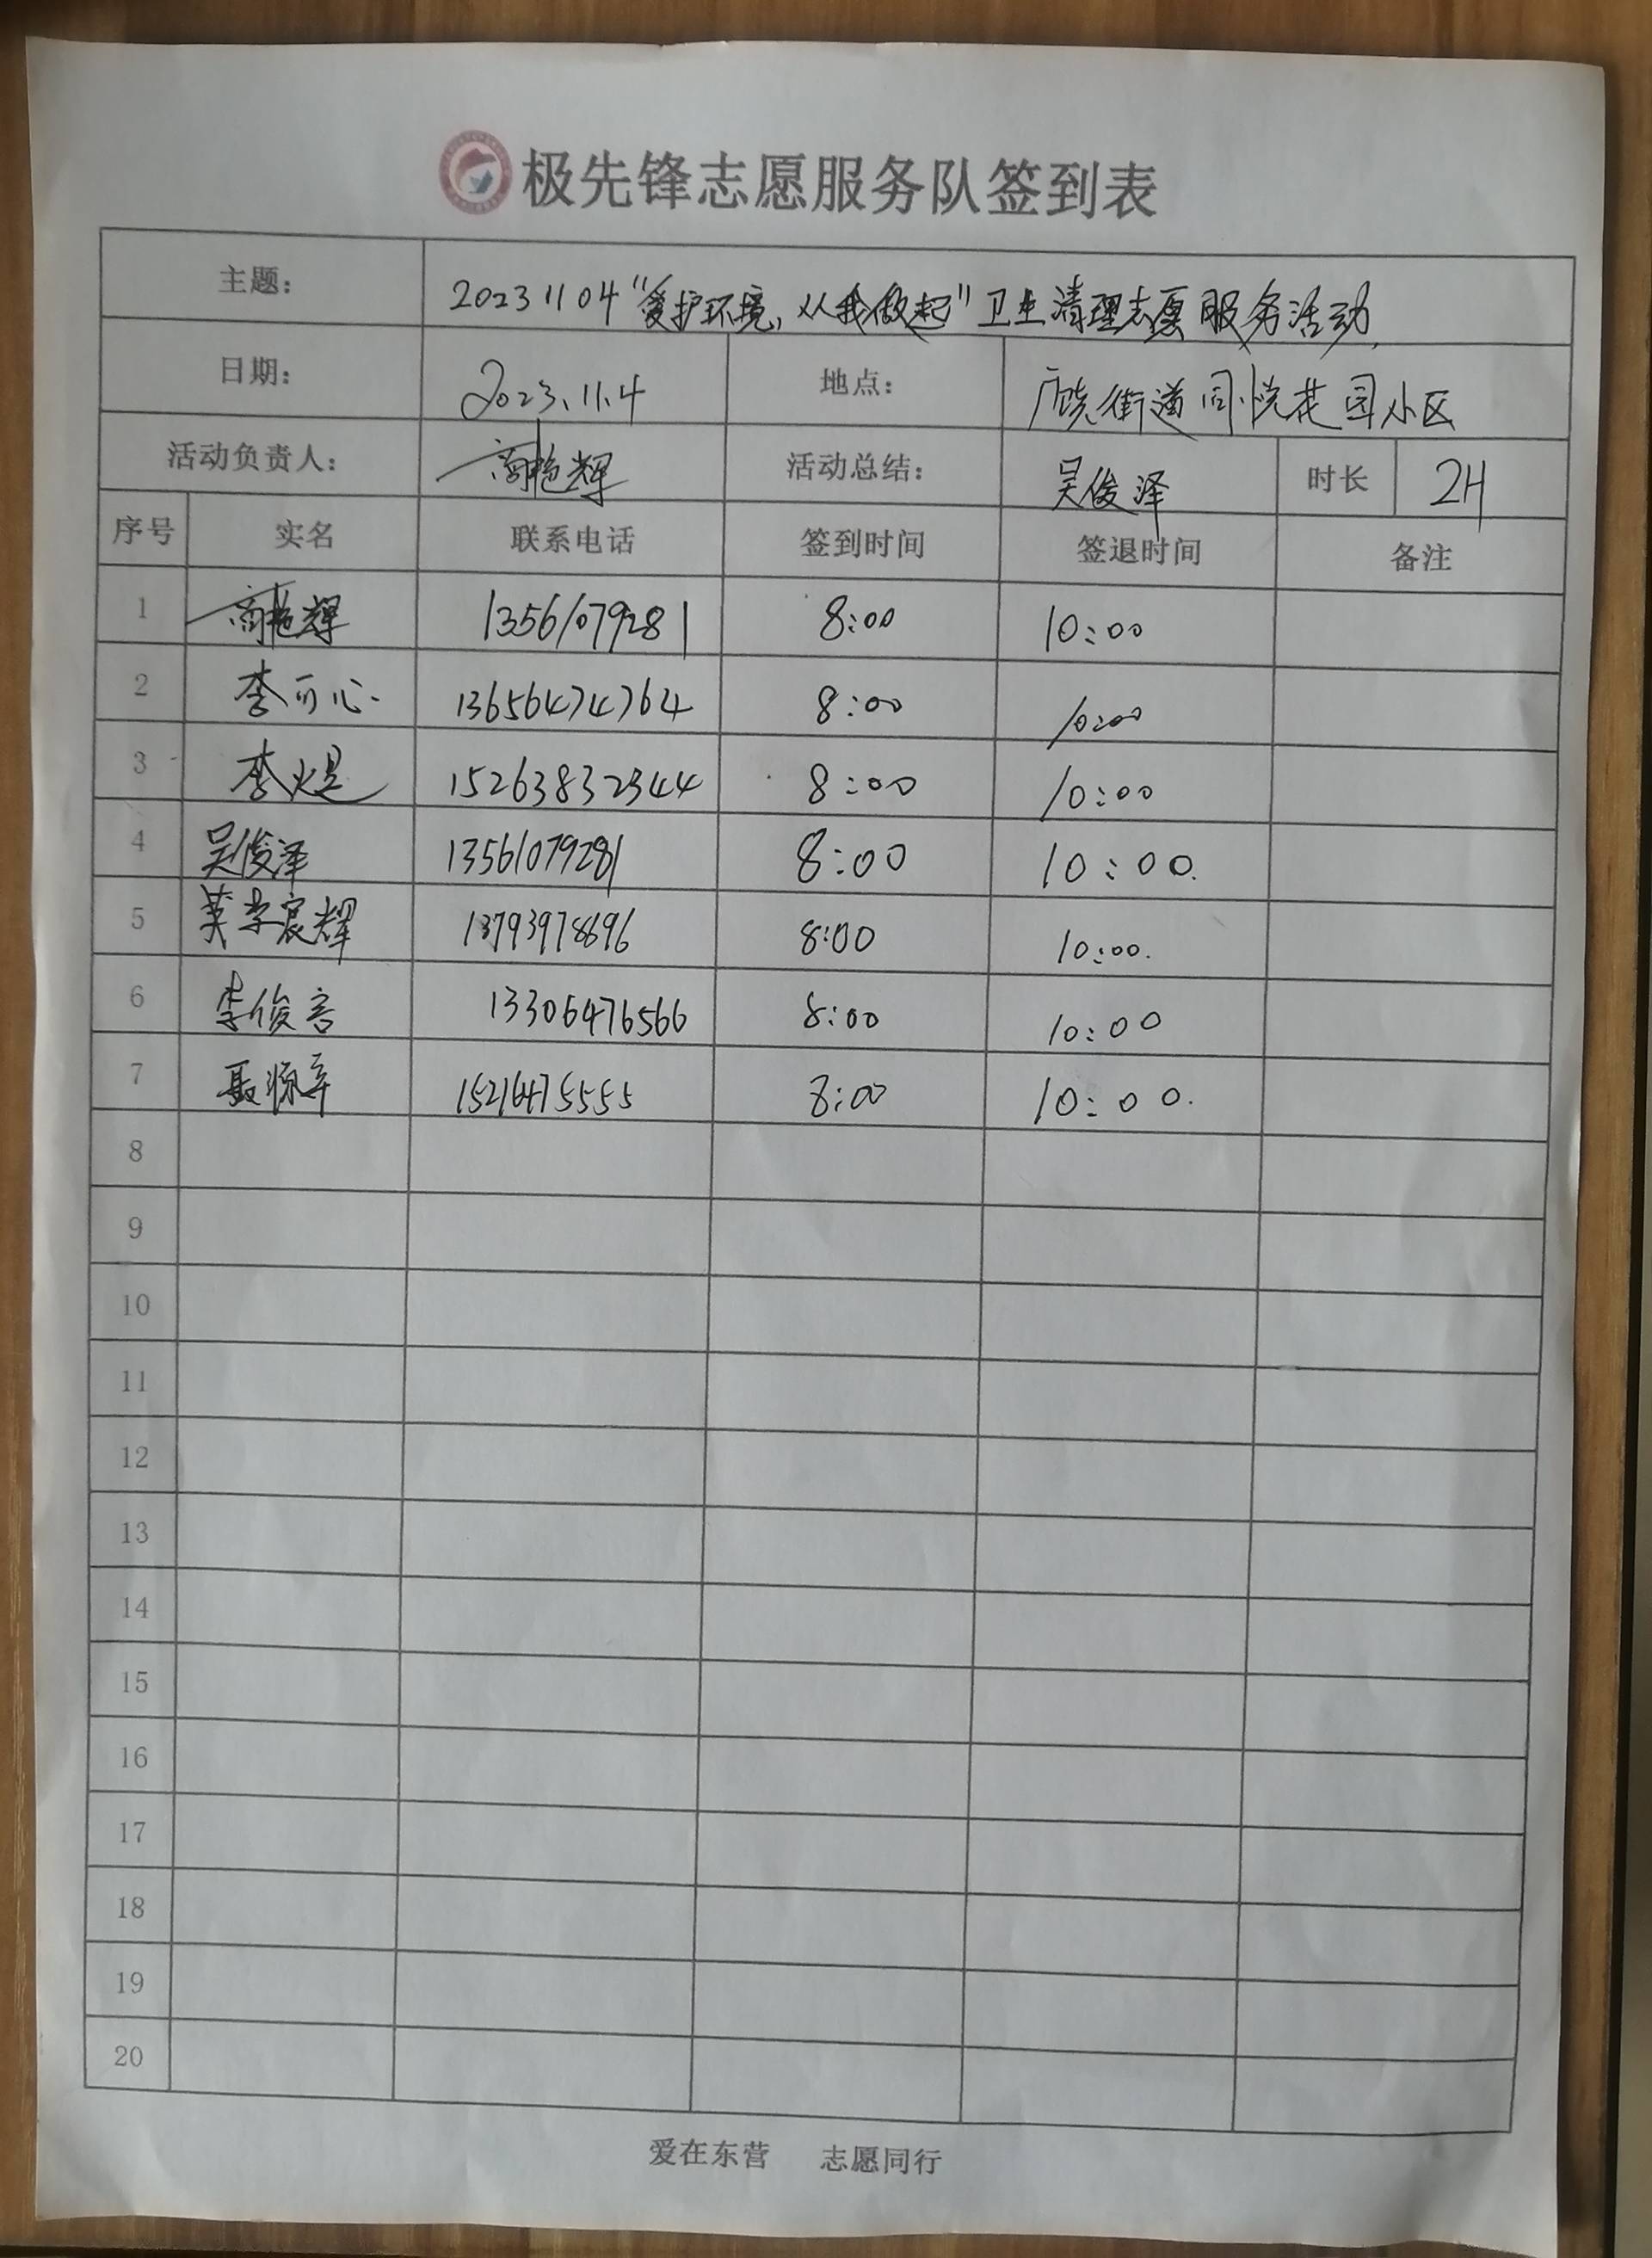 极先锋志愿服务队签到表
主题： 20231104"爱护环境，从我做起"卫生清理志愿服务活动
日期： 2023.11.4 地点： 广饶街道同悦花园小区
活动负责人： 商艳辉 活动总结： 吴俊泽 时长 2H
序号 实名 联系电话 签到时间 签退时间 备注
1 商艳辉 13561079281 8:00 10:00
2 李可心 13656474764 8:00 10:00
3 李煜 15263832344 8:00 10:00
4 吴俊泽 13561079281 8:00 10:00.
5 13793978696 8:00 10:00.
6 李俊言 13306476566 8:00 10:00
7 15216475555 8:00 10:00.
8
9
10
11
12
13
14
15
16
17
18
19
20
爱在东营 志愿同行